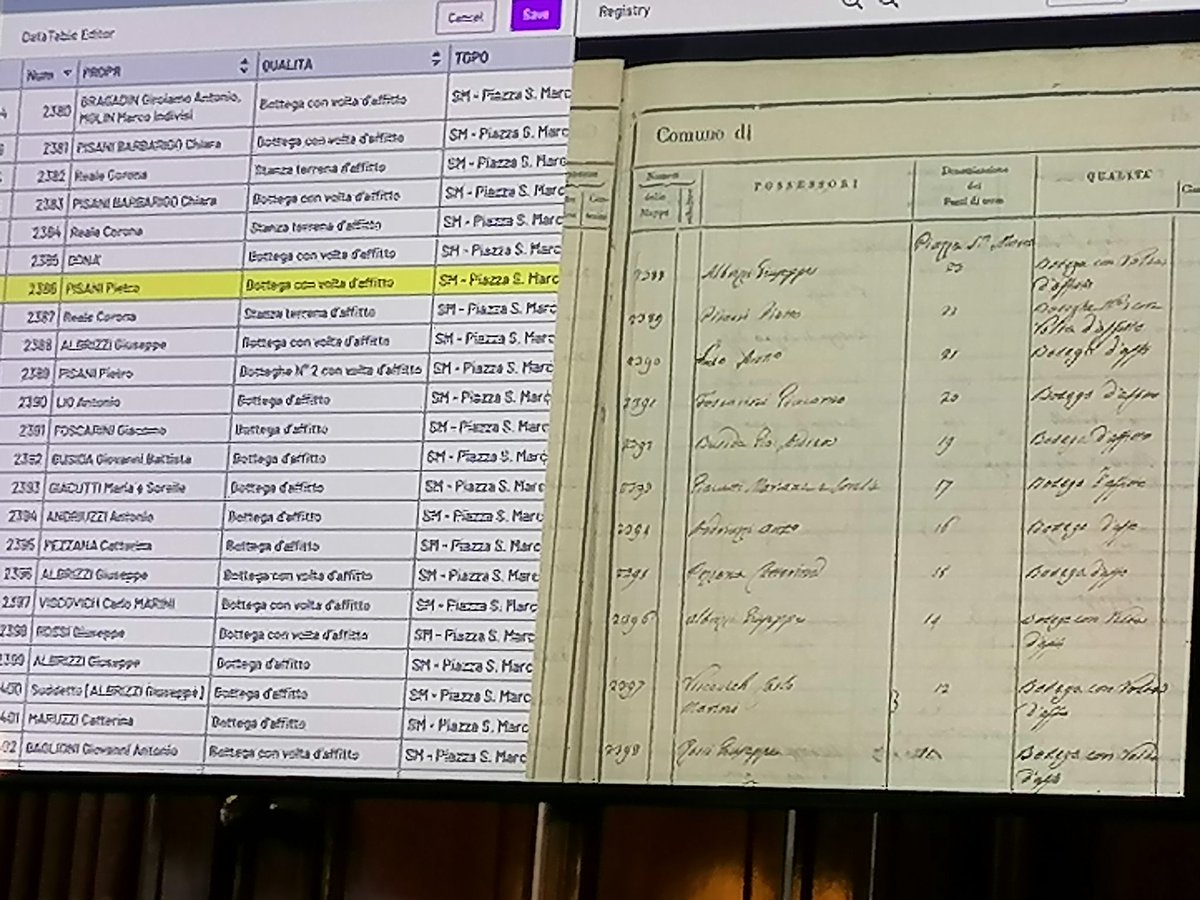 DataTable Editor
Cancel
Save
Num PROPR QUALITA TOPO
2380 BRAGADIN Girolamo Antonio, MOLIN Marco Indivisi Bottega con volta d'affitto SM - Piazza S. Marc
2381 PISANI BARBARIGO Chiara Bottega con volta d'affitto SM - Piazza S. Marc
2382 Reale Corona Stanza terrena d'affitto SM - Piazza S. Marc
2383 PISANI BARBARIGO Chiara Bottega con volta d'affitto SM - Piazza S. Marc
2384 Reale Corona Stanza terrena d'affitto SM - Piazza S. Marc
2385 DONA' Bottega con volta d'affitto SM - Piazza S. Marc
2386 PISANI Pietro Bottega con volta d'affitto SM - Piazza S. Marc
2387 Reale Corona Stanza terrena d'affitto SM - Piazza S. Marc
2388 ALBRIZZI Giuseppe Bottega con volta d'affitto SM - Piazza S. Marc
2389 PISANI Pietro Botteghe N° 2 con volta d'affitto SM - Piazza S. Marc
2390 LIO Antonio Bottega d'affitto SM - Piazza S. Marc
2391 FOSCARINI Giacomo Bottega d'affitto SM - Piazza S. Marc
2392 BUSIDA Giovanni Battista Bottega d'affitto SM - Piazza S. Marc
2393 GIACUTTI Maria e Sorelle Bottega d'affitto SM - Piazza S. Marc
2394 ANDRIUZZI Antonio Bottega d'affitto SM - Piazza S. Marc
2395 PEZZANA Catterina Bottega d'affitto SM - Piazza S. Marc
2396 ALBRIZZI Giuseppe Bottega con volta d'affitto SM - Piazza S. Marc
2397 VISCOVICH Carlo MARINI Bottega con volta d'affitto SM - Piazza S. Marc
2398 ROSSI Giuseppe Bottega con volta d'affitto SM - Piazza S. Marc
2399 ALBRIZZI Giuseppe Bottega d'affitto SM - Piazza S. Marc
400 Suddetto [ALBRIZZI Giuseppe] Bottega d'affitto SM - Piazza S. Marc
401 MARUZZI Catterina Bottega d'affitto SM - Piazza S. Marc
02 BAGLIONI Giovanni Antonio Bottega con volta d'affitto SM - Piazza S. Marc
Registry
Comune di
Numero della Mappa
POSSESSORI
Denominazione dei Pezzi di terra
QUALITA
2388 Albrizi Giuseppe 23 Bottega con Volta d'affitto
2389 Pisani Pietro 22 Botteghe N° 2 con Volta d'affitto
2390 21 Bottega d'aff
2391 Foscarini Giacomo 20 Bottega d'affitto
2392 19 Bottega d'affitto
2393 17 Bottega d'affitto
2394 16 Bottega d'aff
2395 15 Bottega d'aff
2396 Albrizi Giuseppe 14 Bottega con Volta d'aff
2397 12 Bottega con Volta d'aff
2398 Rossi Giuseppe Bottega con Volta d'aff